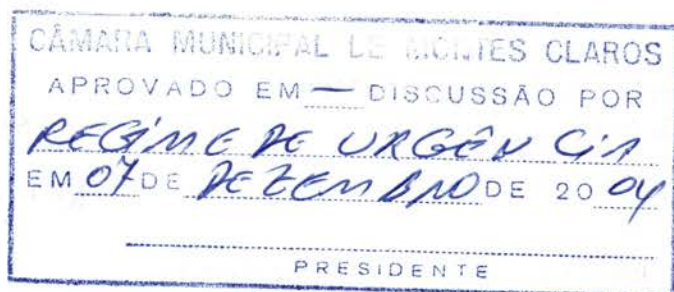 CÂMARA MUNICIPAL DE MONTES CLAROS
APROVADO EM — DISCUSSÃO POR
REGIME DE URGÊNCIA
EM 07 DE DEZEMBRO DE 2004
PRESIDENTE